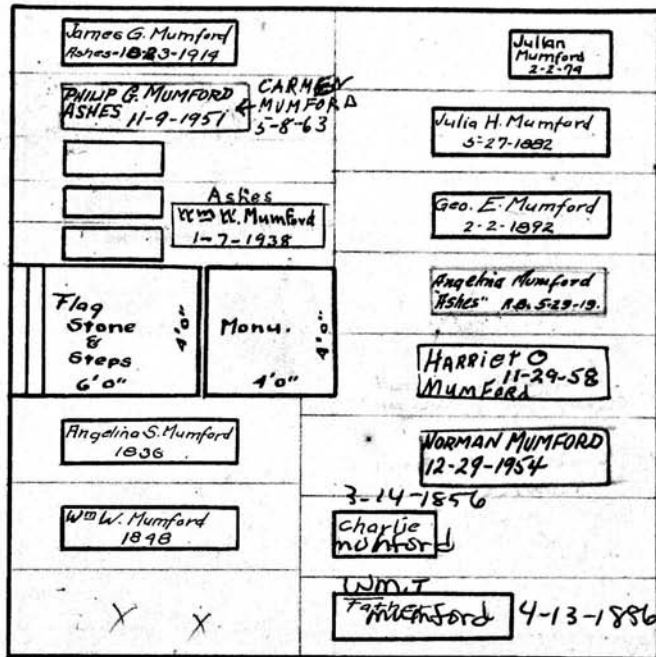 James G. Mumford
Ashes-10-23-1914
PHILIP G. MUMFORD
ASHES 11-9-1951
CARMEN
MUMFORD
5-8-63
Ashes
Wm W. Mumford
1-7-1938
Flag
Stone
&
Steps
6'0"
4'0"
Monu.
4'0"
4'0"
Angelina S. Mumford
1836
Wm W. Mumford
1848
X X
Julian
Mumford
2-2-74
Julia H. Mumford
5-27-1882
Geo. E. Mumford
2-2-1892
Angelina Mumford
"Ashes" R.B. 5-29-19.
HARRIET O
11-29-58
MUMFORD
NORMAN MUMFORD
12-29-1954
3-14-1856
Charlie
mumford
WM. T
mumford 4-13-1886